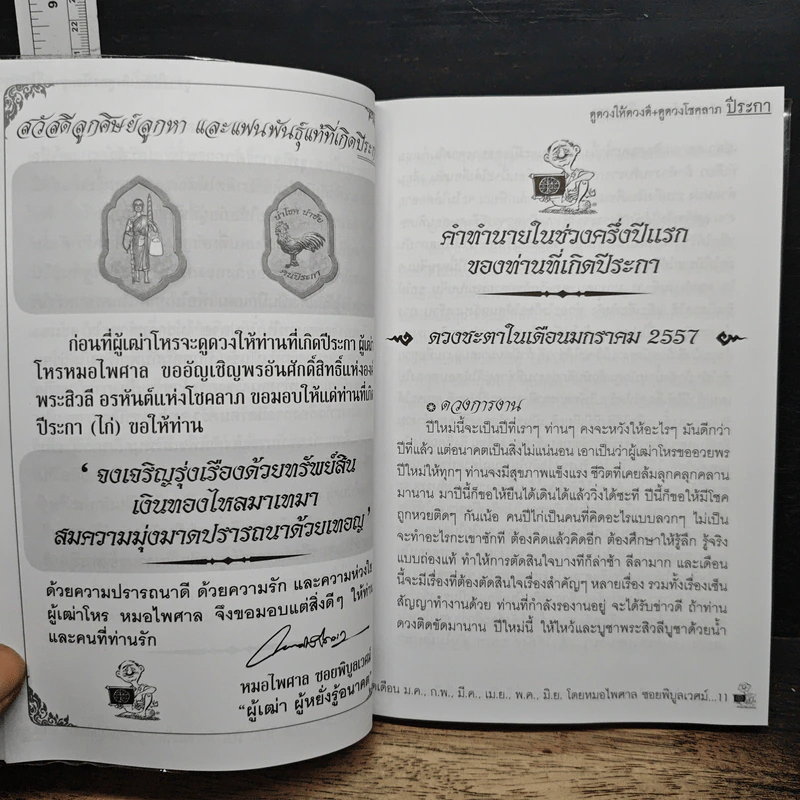 สวัสดีลูกศิษย์ลูกหา และแฟนพันธุ์แท้ที่เกิดปีระกา
นำโชค นำชัย
คนปีระกา
ก่อนที่ผู้เฒ่าโหรจะดูดวงให้ท่านที่เกิดปีระกา ผู้เฒ่า
โหรหมอไพศาล ขออัญเชิญพรอันศักดิ์สิทธิ์แห่งองค์
พระสิวลี อรหันต์แห่งโชคลาภ ขอมอบให้แด่ท่านที่เกิด
ปีระกา (ไก่) ขอให้ท่าน
‘ จงเจริญรุ่งเรืองด้วยทรัพย์สิน
เงินทองไหลมาเทมา
สมความมุ่งมาดปรารถนาด้วยเทอญ’
ด้วยความปรารถนาดี ด้วยความรัก และความห่วงใย
ผู้เฒ่าโหร หมอไพศาล จึงขอมอบแต่สิ่งดีๆ ให้ท่าน
และคนที่ท่านรัก
หมอไพศาล ซอยพิบูลเวศม์
“ผู้เฒ่า ผู้หยั่งรู้อนาคต”
ดูดวงให้ดวงดี+ดูดวงโชคลาภ ปีระกา
คำทำนายในช่วงครึ่งปีแรก
ของท่านที่เกิดปีระกา
ดวงชะตาในเดือนมกราคม 2557
ดวงการงาน
ปีใหม่นี้จะเป็นปีที่เราๆ ท่านๆ คงจะหวังให้อะไรๆ มันดีกว่า
ปีที่แล้ว แต่อนาคตเป็นสิ่งไม่แน่นอน เอาเป็นว่าผู้เฒ่าโหรขออวยพร
ปีใหม่ให้ทุกๆ ท่านจงมีสุขภาพแข็งแรง ชีวิตที่เคยล้มลุกคลุกคลาน
มานาน มาปีนี้ก็ขอให้ยืนได้เดินได้แล้ววิ่งได้ซะที ปีนี้ก็ขอให้มีโชค
ถูกหวยติดๆ กันเน้อ คนปีไก่เป็นคนที่คิดอะไรแบบลวกๆ ไม่เป็น
จะทำอะไรกะเขาซักที ต้องคิดแล้วคิดอีก ต้องศึกษาให้รู้ลึก รู้จริง
แบบถ่องแท้ ทำให้การตัดสินใจบางทีก็ล่าช้า ลีลามาก และเดือน
นี้จะมีเรื่องที่ต้องตัดสินใจเรื่องสำคัญๆ หลายเรื่อง รวมทั้งเรื่องเซ็น
สัญญาทำงานด้วย ท่านที่กำลังรองานอยู่ จะได้รับข่าวดี ถ้าท่าน
ดวงติดขัดมานาน ปีใหม่นี้ ให้ไหว้และบูชาพระสิวลีบูชาด้วยน้ำ
เดือน ม.ค., ก.พ., มี.ค., เม.ย., พ.ค., มิ.ย. โดยหมอไพศาล ซอยพิบูลเวศม์...11